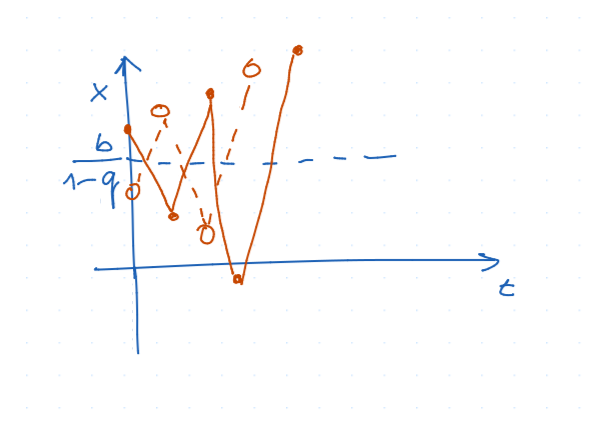 x
b
1-q
t